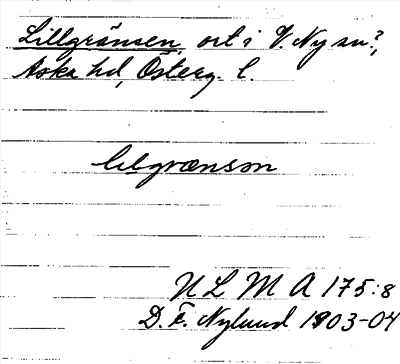 Lillgränsen, ort i V. Ny sn?,
Aska hd, Österg. l.
lilgrænsøn
ULMA 175:8
D. F. Nylund 1903-04